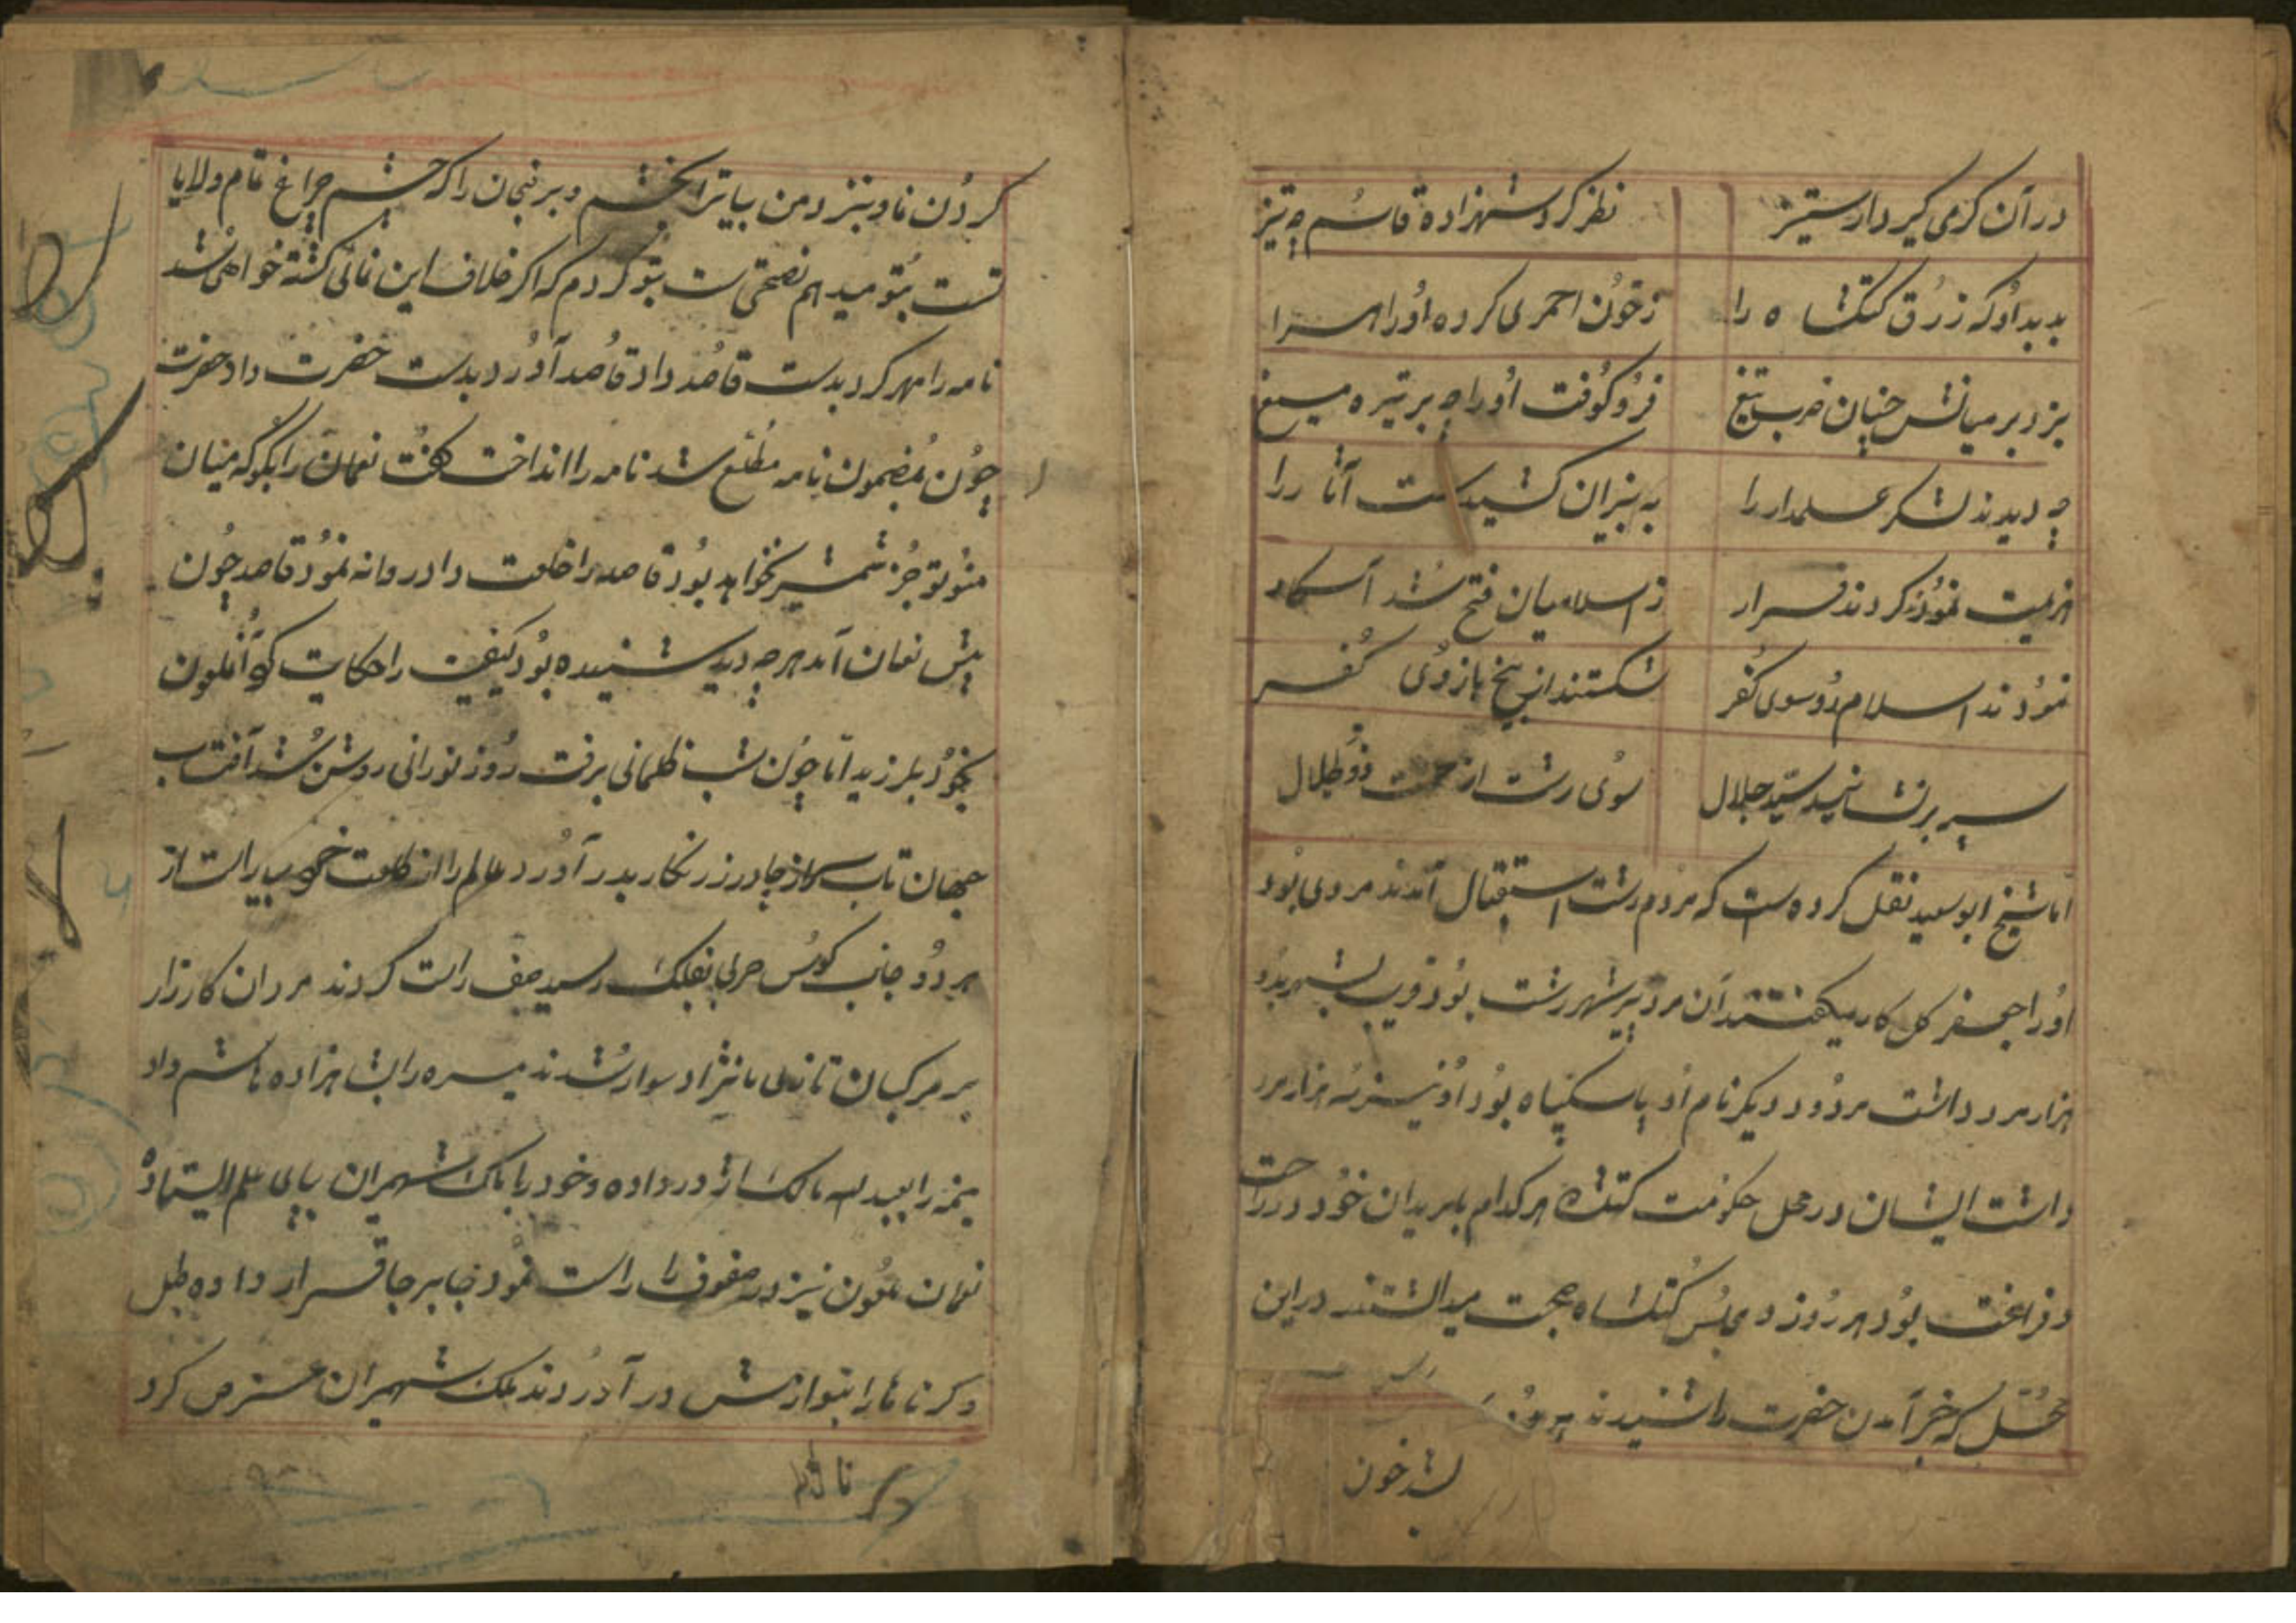 در آن گرمی گیر دار ستیز
نظر کرد شهزاده قاسم چه تیز
بدید او که زرق کتکشاه را
ز خون احمری کرده او را سرا
بزد بر میانش چنان ضرب تیغ
فرو کوفت او را چه بر تیره میغ
چه دیدند لشکر علمدار را
به نیران کشیدست آثار را
هزیمت نموند کردند فرار
ز اسلامیان فتح شد آشکار
نمودند اسلام رو سوی کفر
شکستند از بیخ بازوی کفر
سوی رشت از حمت ذو طلال
اما شیخ ابو سعید نقل کرده است که مردم رشت استقبال آمدند مردی بود
او را جعفر کل کار میگفتند آن مرد پیر شهر رشت بود قریب بشهر بدو
هزار مرد داشت مردود دیگر نام او پاسکیاه بود او نیز سه هزار مرد
داشت ایشان در محل حکومت کتکشاه هر کدام بامریدان خود در راحت
و فراغت بود هر روز در مجلس کتکشاه صحبت میداشتند در این
محل که خبر آمدن حضرت را شنیدند
کردن نادونیز دمن بیا ترا بخشم و برنجان را که چشم چراغ تمام ولایا
تست بتو میدهم نصحتی ست بتو کردم که اکر خلاف این نمائی کشته خواهی شد
نامه را مهر کرد بدست قاصد داد قاصد آورد بدست حضرت داد حضرت
چون بمضمون نامه مطلع شد نامه را انداخت گفت نعمان را بگو که میان
منو تو جز شمشیر نخواهد بود قاصد را خلعت داد روانه نمود قاصد چون
پیش نعمان آمد هر چه دید شنیده بود کیفیت را حکایت کو آنملعون
بخود بلرزید اما چون شب ظلمانی برفت روز نورانی روشن شد آفتاب
جهان تاب سر از چادر زرنکار بدر آورد عالم را از خلعت
هر دو جانب کوس حربی بفلک رسید صف راست کردند مردان کارزار
بر مرکبان تازی نژاد سوار شدند میسره را بشاهزاده هاشم داد
یمنه را بعبد الله مالک اژدر داده و خود با بامک شهمیران بپای علم ایستاده
نعمان ملعون نیز در صفوف را راست نمود جابر جا قرار داده طبل
و کرناها را بنوازش در آوردند ملک شهمیران عرض کرد